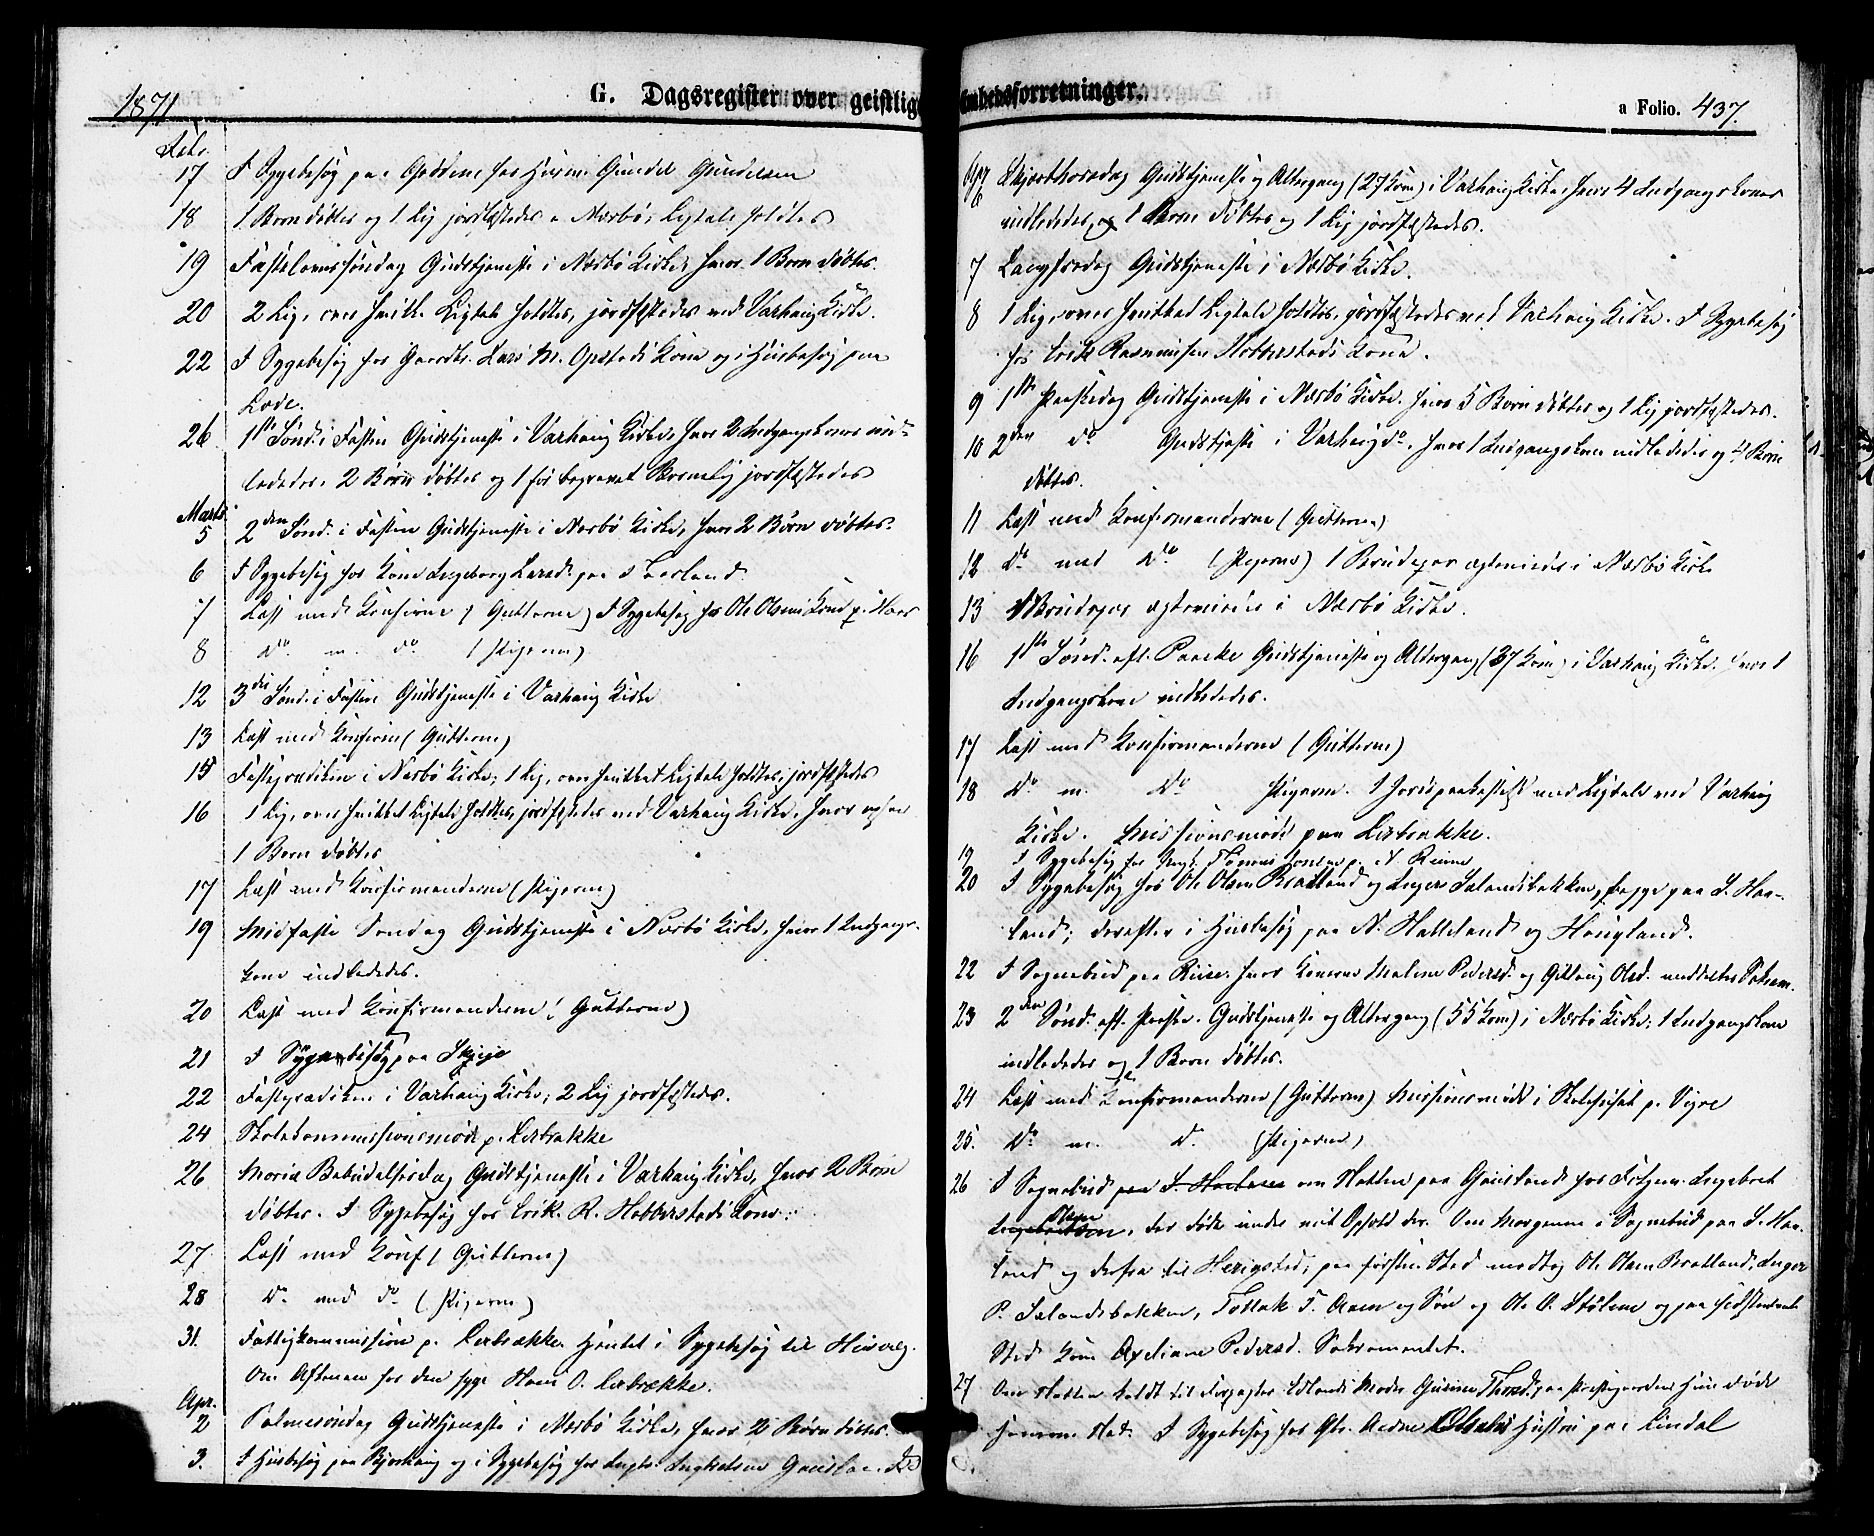 G. Dagsregister over geistlige Embedsforretninger.
1871
a Folio. 437.
Febr.
17 I Sygebesøg paa Grødem hos Huusm. Gundel Gundelsen
18 1 Barn døbtes og 1 Lig jordfæstedes v. Nærbø; Ligtale holdtes
19 Fastelavnssøndag Gudstjeneste i Nærbø Kirke, hvor 1 Barn døbtes.
20 2 Lig, over hvilke Ligtale holdtes, jordfæstedes ved Varhaug Kirke.
22 I Sygebesøg hos Gaardbr. Lars M. Opstads Kone og i Huusbesøg paa
Lode.
26 1ste Sønd. i Fasten Gudstjeneste i Varhaug Kirke, hvor 2 Indgangskoner ind-
lededes, 2 Børn døbtes og 1 før begravet Barnelig jordfæstedes
Marts
5 2den Sønd. i Fasten Gudstjeneste i Nærbø Kirke, hvor 2 Børn døbtes.
6 I Sygebesøg hos Kone Ingeborg Larsd. paa
7 Læst med Konfirm. (Gutterne) I Sygebesøg hos Ole Olsens Kone p. Haar
8 do m. do (Pigerne)
12 3die Sønd. i Fasten Gudstjeneste i Varhaug Kirke
13 Læst med Konfirm (Gutterne)
15 Fasteprædiken i Nærbø Kirke; 1 Lig, over hvilket Ligtale holdtes, jordfæstedes
16 1 Lig, over hvilket Ligtale holdtes, jordfæstedes ved Varhaug Kirke, hvor ogsaa
1 Barn døbtes
17 Læst med Konfirmanderne (Pigerne)
19 Midfaste Søndag Gudstjeneste i Nærbø Kirke, hvor 1 Indgangs-
kone indlededes.
20 Læst med Konfirmanderne (Gutterne)
21 I Sygebesøg paa Skeje
22 Fasteprædiken i Varhaug Kirke; 2 Lig jordfæstedes.
24 Skolekommissionsmøde p. Lerbrække
26 Mariæ Bebudelsesdag Gudstjeneste i Varhaug Kirke, hvor 2 Børn
døbtes. I Sygebesøg hos Erik R. Hobberstads Kone.
27 Læst med Konf (Gutterne)
28 do med do (Pigerne)
31. Fattigkommission p. Lerbrække. Hentet i Sygebesøg til
Om Aftenen hos den syge Hans O. Lerbrække.
Apr.
2 Palmesøndag Gudstjeneste i Nærbø Kirke, hvor 2 Børn døbtes.
3. I Huusbesøg paa Bjorhaug og i Sygebesøg hos
Apr
6 Skjærthorsdag Gudstjeneste og Altergang (27 Kom) i Varhaug Kirke, hvor 4 Indgangskoner
indlededes, og 1 Barn døbtes og 1 Lig jordfæstedes.
7 Langfredag Gudstjeneste i Nærbø Kirke.
8 1 Lig, over hvilket Ligtale holdtes, jordfæstedes ved Varhaug Kirke. I Sygebesøg
hos Erik Rasmussen Hobberstads Kone.
9 1ste Paaskedag Gudstjeneste i Nærbø Kirke, hvor 5 Børn døbtes og 1 Lig jordfæstedes.
10 2den do Gudstjeste i Varhaug do, hvor 1 Indgangskone indlededes og 4 Børn
døbtes.
11 Læst med Konfirmanderne (Gutterne)
12 do med do (Pigerne) 1 Brudepar ægteviedes i Nærbø Kirke
13 1 Brudepar ægteviedes i Nærbø Kirke.
16 1ste Sønd. eft. Paaske Gudstjeneste og Altergang (37 Kom) i Varhaug Kirke, hvor 1
Indgangskone indlededes.
17 Læst med Konfirmanderne (Gutterne)
18 do m. do Pigerne. 1 Jordpaakastelse med Ligtale ved Varhaug
Kirke. Missionsmøde paa Lerbrække.
19 I Sygebesøg hos
20 I Sygebesøg hos Ole Olsen Bratland og Inger Salandsbakken, begge paa S. Haa-
land; derefter i Huusbesøg paa N. Hatteland og Hougland.
22 I Sognebud paa Riise, hvor Konerne Malene Pedersd. og Gitlaug Olsd. meddeltes Sakram.
23 2den Sønd. eft. Paaske. Gudstjeneste og Altergang (55 Kom) i Nærbø Kirke; 1 Indgangskone
indlededes og 1 Barn døbtes.
24 Læst med Konfirmanderne (Gutterne) Missionsmøde i Skolehuset p. Vigre
25. do m. d. (Pigerne)
26 I Sognebud paa S. Haaland om Natten paa Gauseland hos Ingebret
Olsen, der døde under mit Ophold der. Om Morgenen i Sognebud paa S. Haa-
land og derfra til Herigstad; paa første Sted modtog Ole Olsen Bratland, Inger
P. Salandsbakken, Tollak T. Aaen og Søn og Ole O. Stølene og paa sidstnævnte
Sted Kone Axeliane Pedersd. Sakramentet.
27 Om Natten kaldt til Forpagter Edlands Moder Gurine Thorsd. paa Præstegaarden; hun døde
samme Nat. I Sygebesøg hos Gbr. Hustru paa Lindal